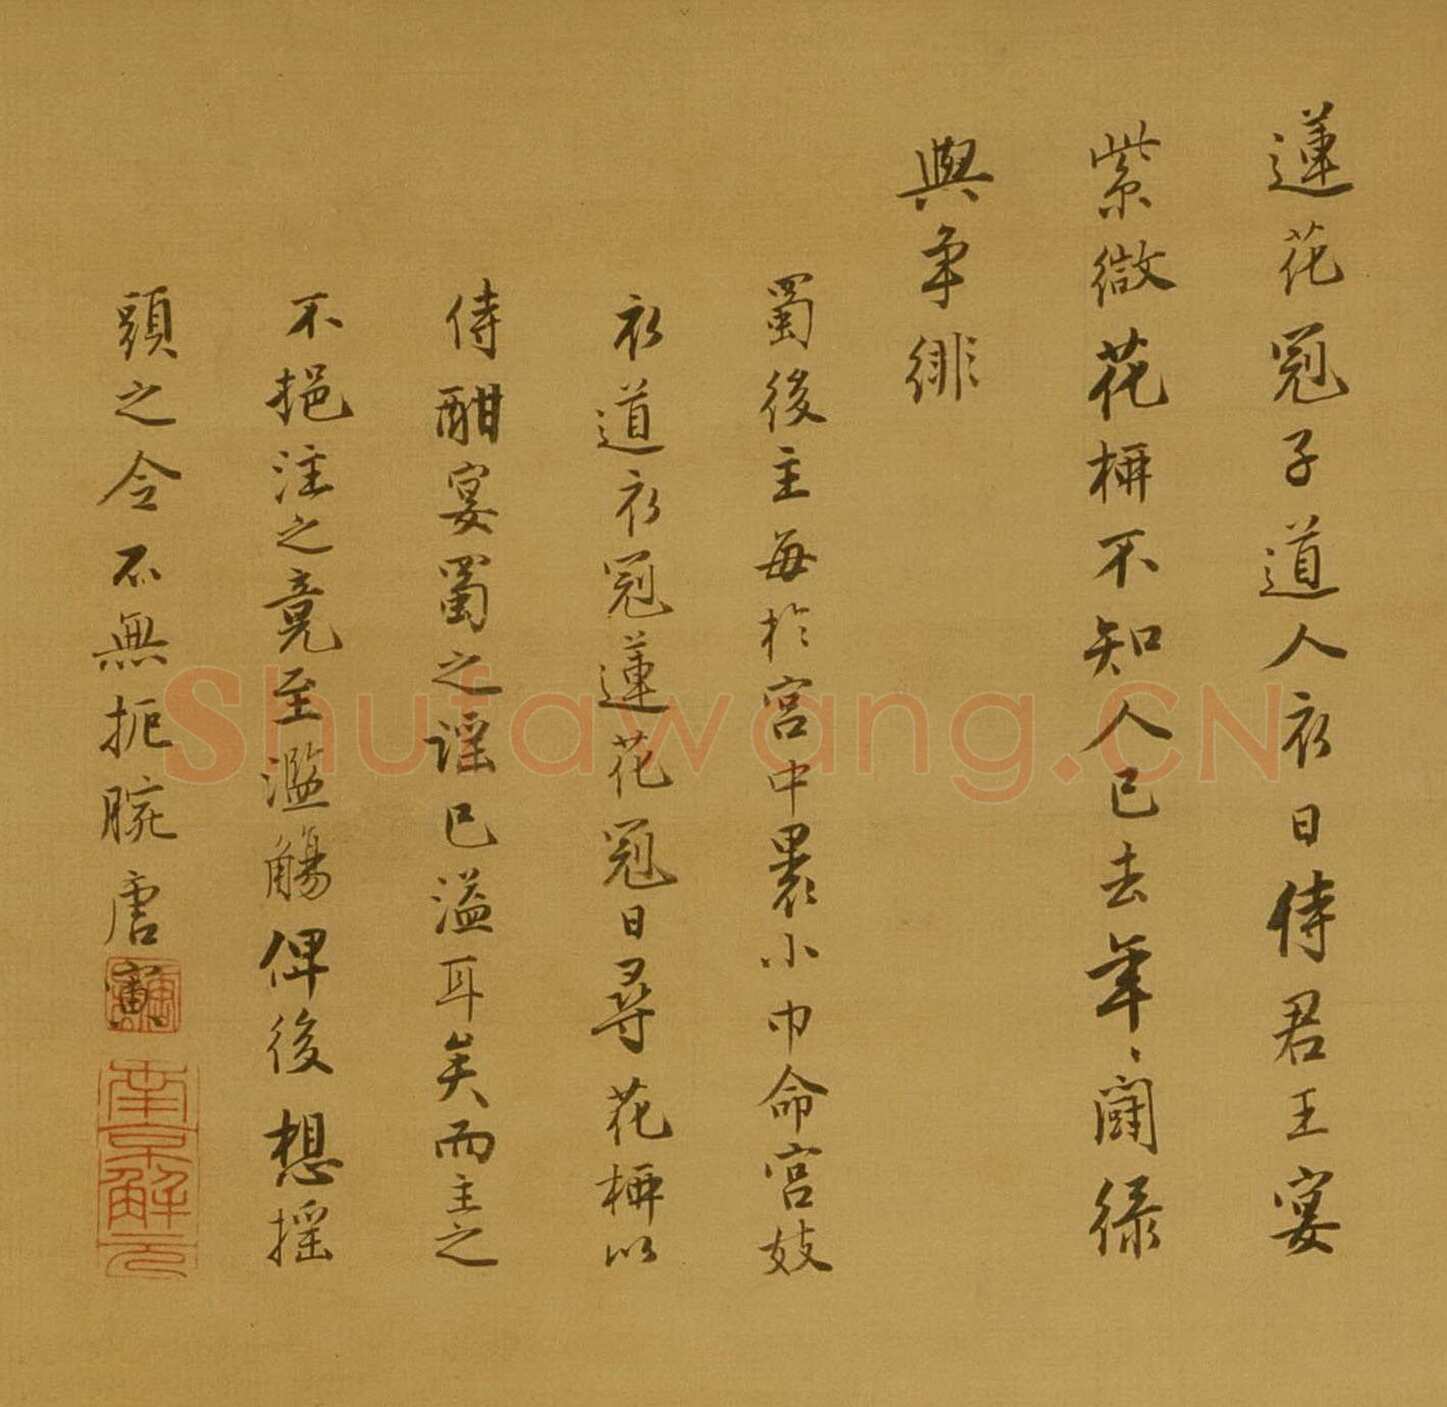 蓮花冠子道人衣日侍君王宴
紫微花柳不知人已去年〻鬪緑
與爭緋
蜀後主每於宮中裹小巾命宮妓
衣道衣冠蓮花冠日尋花柳以
侍酣宴蜀之謡已溢耳矣而主之
不挹注之竟至濫觴俾後想揺
頭之令不無扼腕唐寅
南京解元
Shufawang.CN